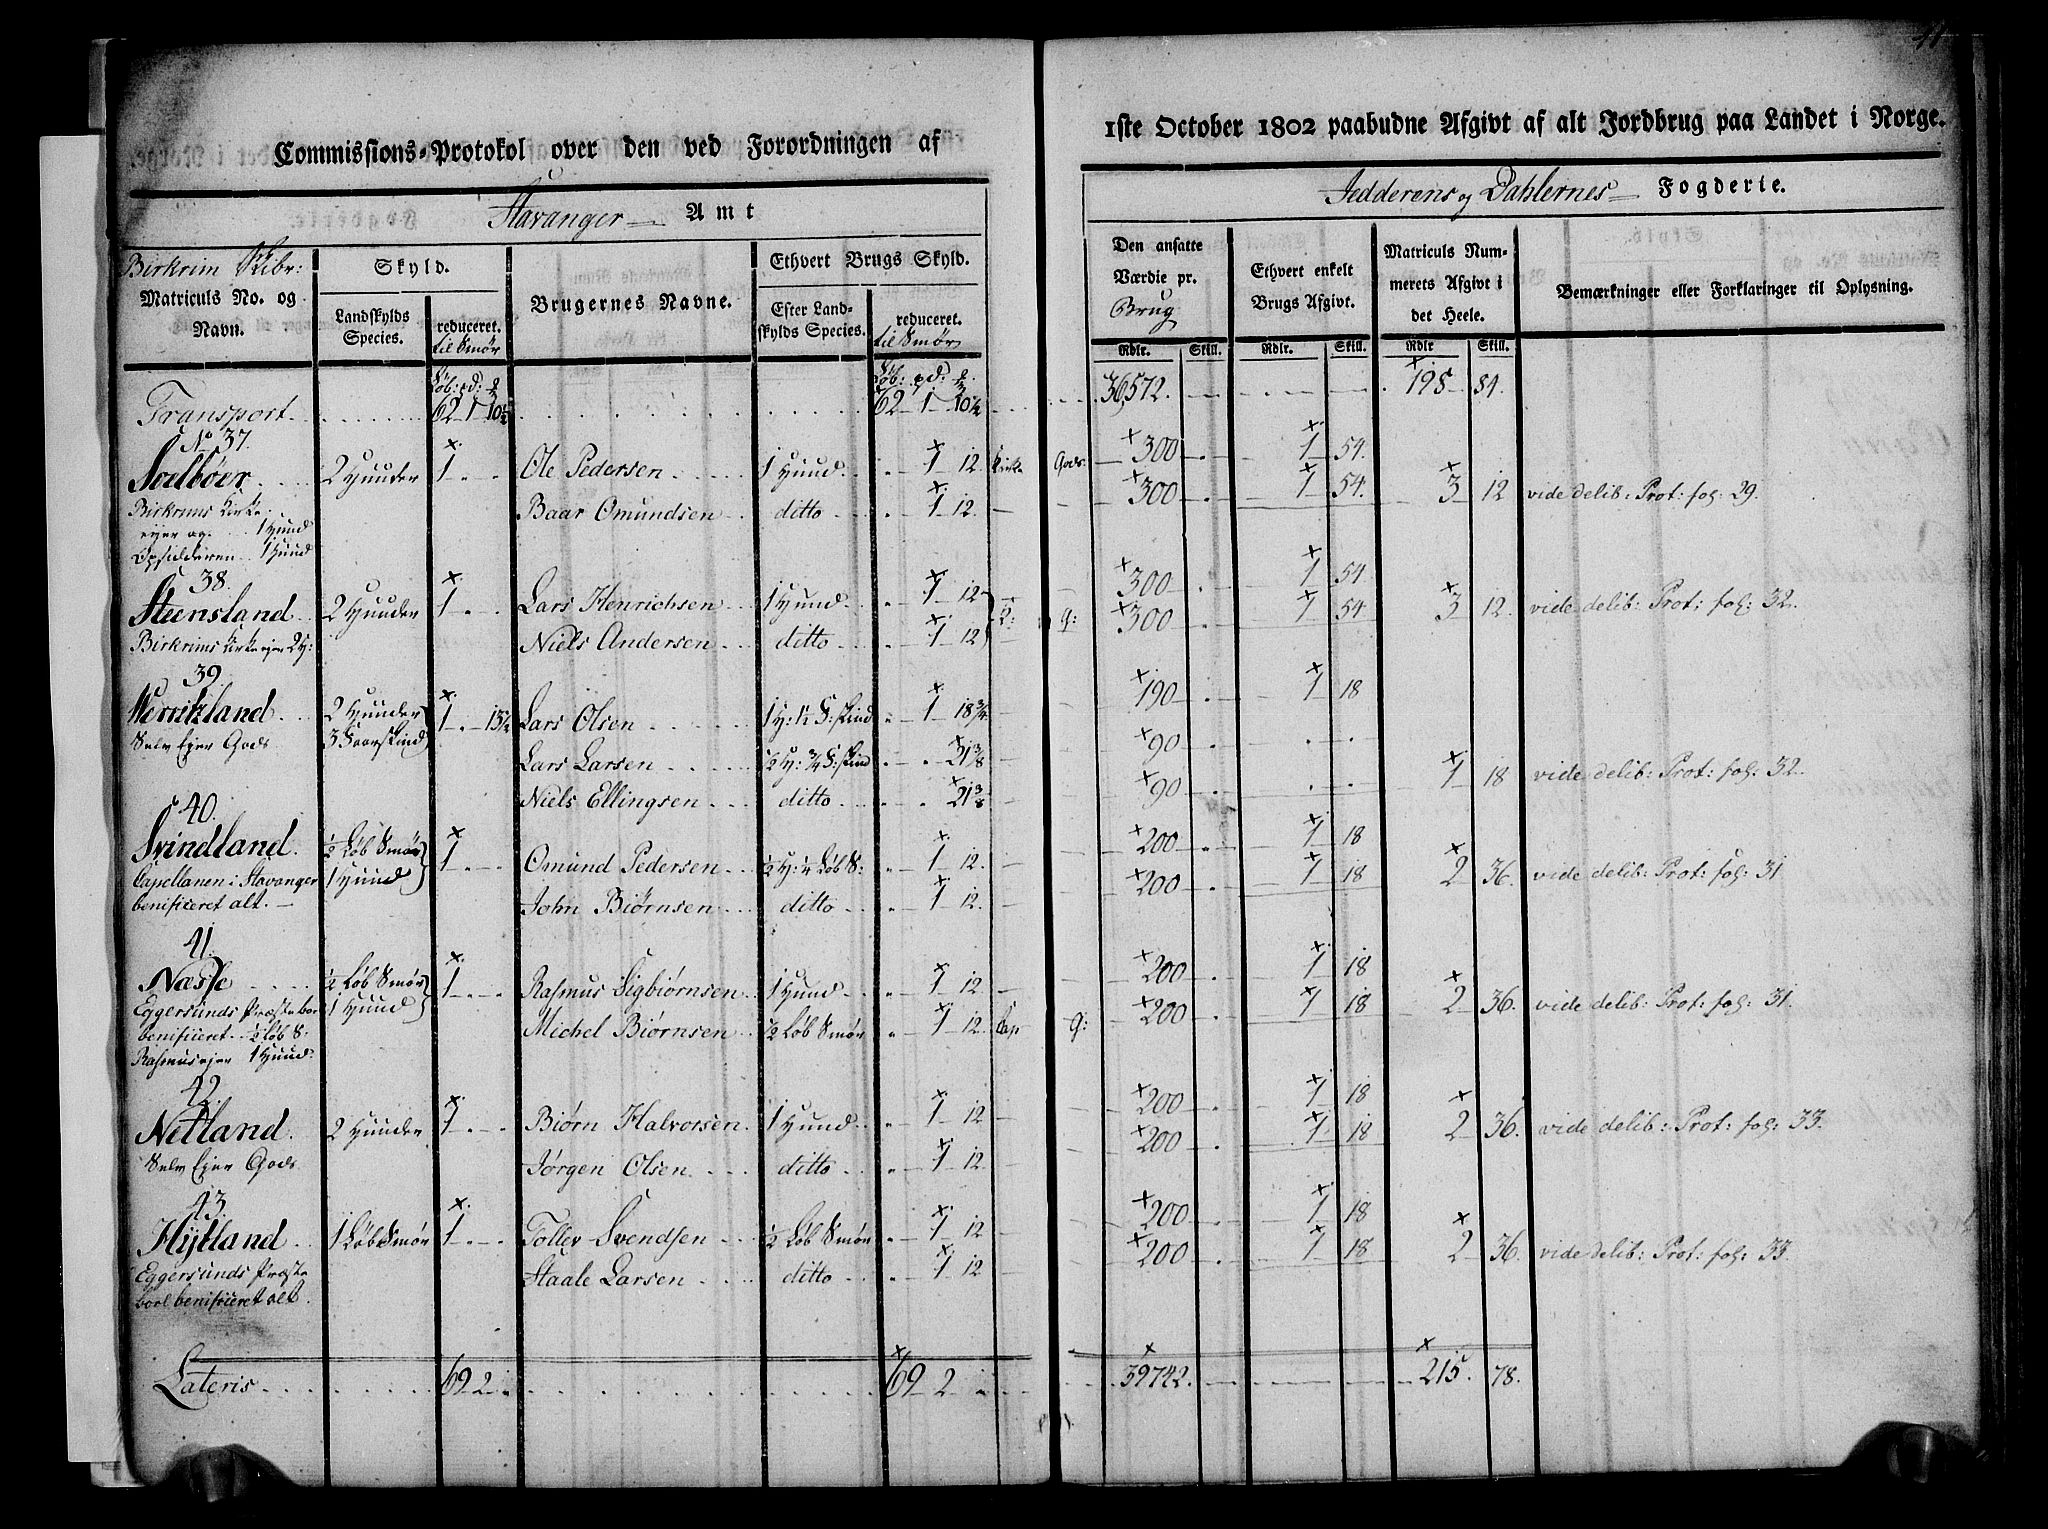 Commissions-Protokol over den ved Forordningen af
1ste October 1802 paabudne Afgivt af alt Jordbrug paa Landet i Norge.
Stavanger Amt
Jedderens og Dahlernes Fogderie.
Birkrim Skibr:
Matriculs No. og Navn.
Skyld.
Landskylds Species.
reduceret. til Smør
Brugernes Navne.
Ethvert Brugs Skyld.
Efter Landskylds Species.
reduceret. til Smør
Den ansatte Værdie pr. Brug
Ethvert enkelt Brugs Afgivt.
Matriculs Nummerets Afgivt i det Heele.
Bemærkninger eller Forklaringer til Oplysning.
Rdlr. Skill. Rdlr. Skill. Rdlr Skill.
Transport 62 1 10½ 62 1 10½ 36,572. 198 84.
No 37.
Soelbøer 2 Huuder 1 Ole Pedersen 1 Huud 1 12. Kirke Gods: 300 1 54.
Birkrims Kirke Baar Omundsen ditto 1 12. 300 1 54. 3 12 vide delib: Prot: fol: 29.
ejer og 1 Huud
Opsidderen 1 Huud
38.
Steensland 2 Huuder 1 Lars Henrichsen 1 Huud 1 12 K: G: 300 1 54
Birkrims Kirke ejer 2 H: Niels Andersen ditto 1 12 300 1 54 3 12. vide delib: Prot: fol: 32.
39.
Werrikland 2 Huuder 3 Faarskind 1 13½ Lars Olsen 1 H: 1½ F: skind 1 18¾ 190 1 18
Selv Ejer Gods Lars Larsen ½ H: ¾ F: skind 21⅜ 90
Niels Ellingsen ditto 21⅜ 90 1 18 vide delib: Prot: fol: 32.
40.
Svindland ½ Løb Smør 1 Huud 1 Omund Pedersen ½ H: ¼ Løb S: 1 12. 200 1 18
Capellanen i Stavanger John Biørnsen ditto 1 12. 200 1 18 2 36. vide delib: Prot: fol: 31
benificeret alt.
41.
Næsse ½ Løb Smør 1 Huud 1 Rasmus Sigbiørnsen 1 Huud 1 12 200 1 18
Eggersunds Præste boe Michel Biørnsen ½ Løb Smør 1 12 Cap G: 200 1 18 2 36. vide delib: Prot: fol: 31.
benificeret ½ Løb S:
Rasmus ejer 1 Huud
42.
Netland 2 Huuder 1 Biørn Halvorsen 1 Huud 1 12 200 1 18
Selv Ejer Gods Jørgen Olsen ditto 1 12. 200 1 18 2 36. vide delib: Prot: fol: 33.
43.
Hytland 1 Løb Smør 1 Tollev Svendsen ½ Løb Smør 1 12 200 1 18
Eggersunds Præste Staale Larsen ditto 1 12 200 1 18 2 36. vide delib: Prot: fol: 33.
boel benificeret alt.
Lateris 69 2 69 2 39742. 215. 78.